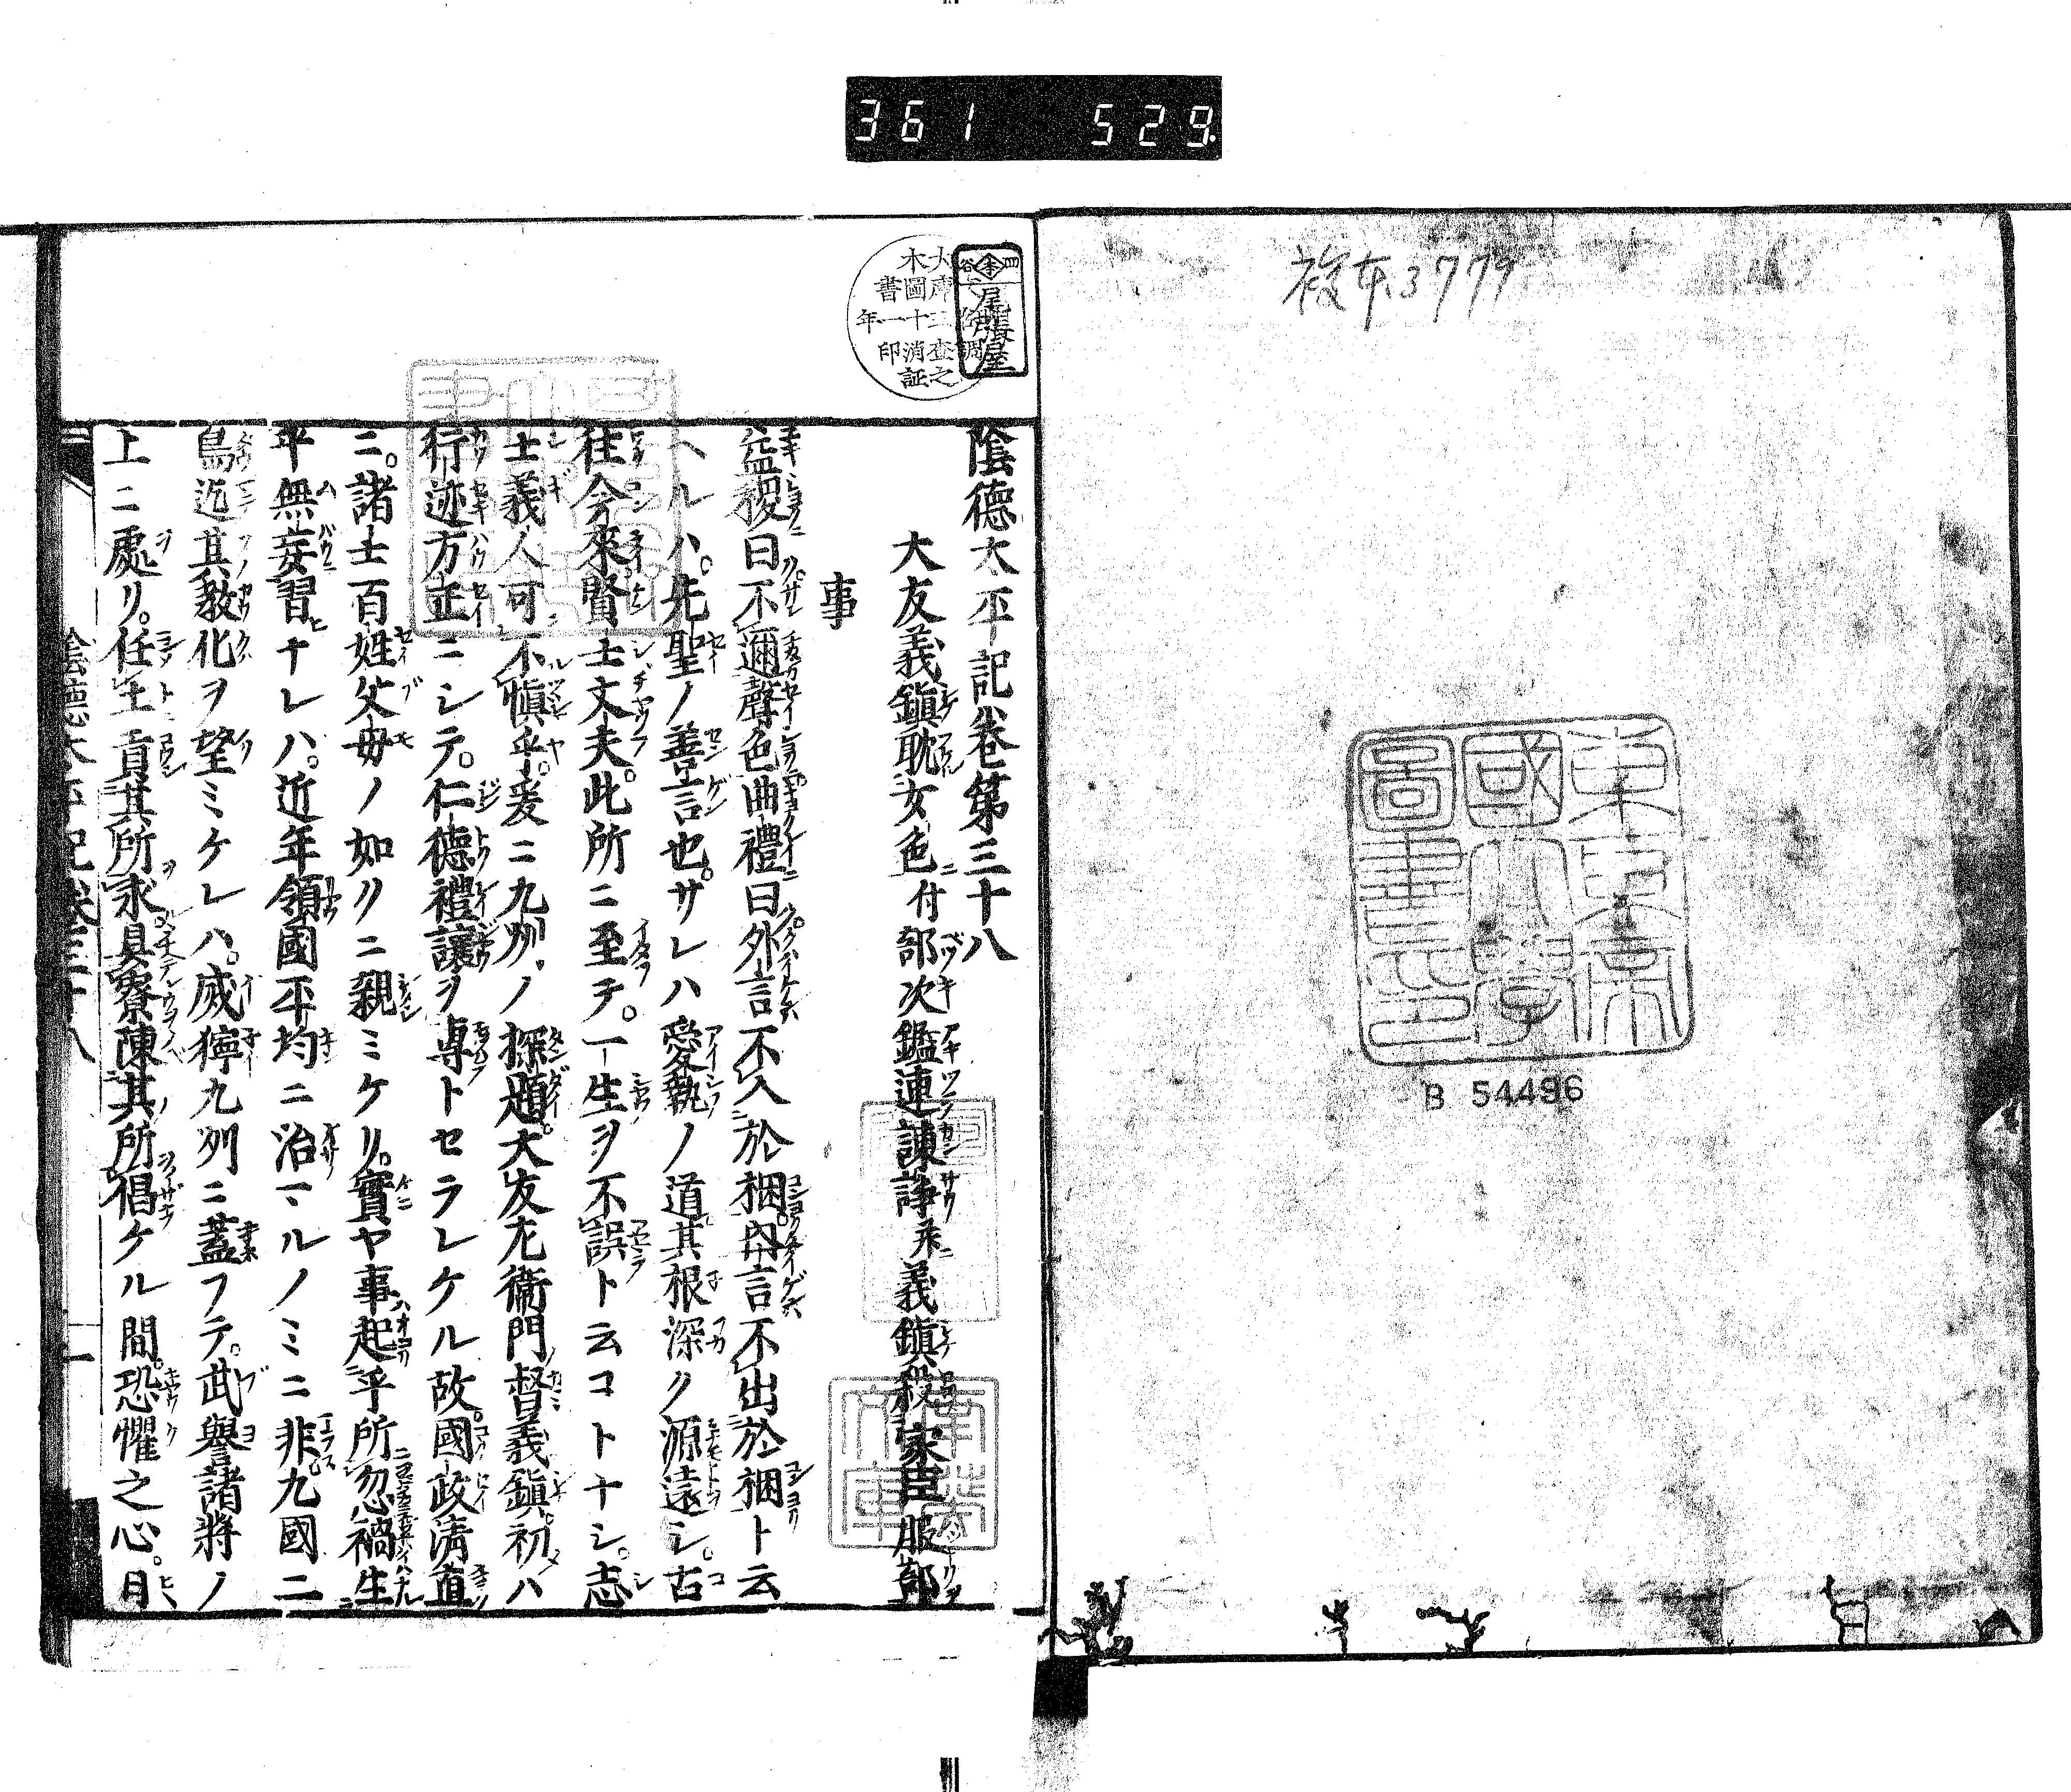 361 529.
複本3779
東京帝國大學圖書之印
B 54496
尾張屋
陰德太平記卷第三十八
大友義鎭耽女色付部次鑑連諫諍乘義鎭殺家臣服部
事
益稷曰不邇聲色曲禮曰外言不入於梱內言不出於梱ト云
ヘルハ。先聖ノ善言也。サレハ愛執ノ道其根深ク源遠シ。古
往今來賢士丈夫。此所ニ至テ。一生ヲ不誤ト云コトナシ。志
士義人可不愼乎。爰ニ九州ノ探題。大友左衞門督義鎭。初ハ
行迹方正ニシテ。仁德禮讓ヲ專トセラレケル故。國政淸直
ニ。諸士百姓父母ノ如クニ親ミケリ。實ヤ事起乎所忽禍生
乎無妄習ナレハ。近年領國平均ニ治マルノミニ非。九國二
嶌迄其教化ヲ望ミケレハ。威獰九列ニ蓋フテ。武譽諸將ノ
上ニ處リ。任土貢其所求具寮陳其所倡ケル間。恐懼之心。日
陰德太平記卷三十八 一